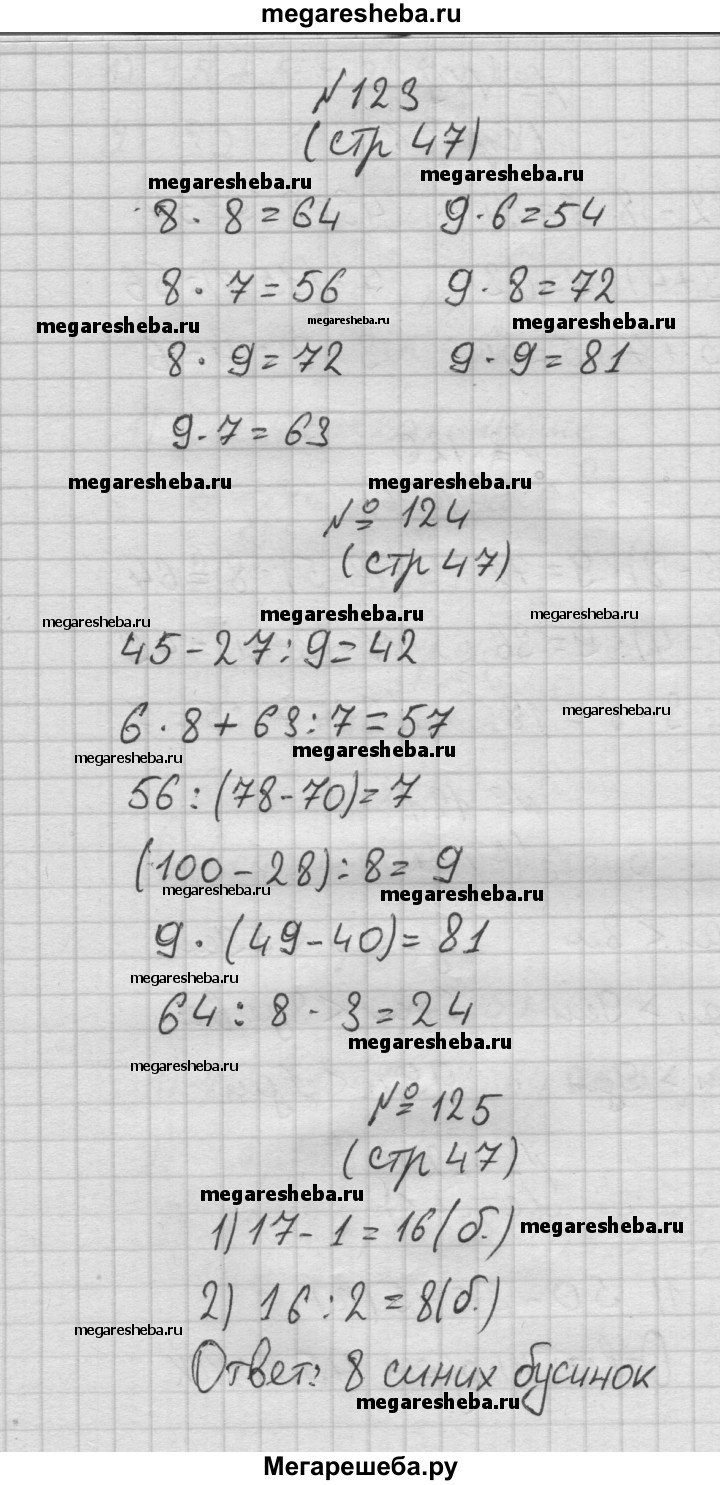 megaresheba.ru
№123
(стр 47)
megaresheba.ru megaresheba.ru
8 · 8 = 64 9 · 6 = 54
8 · 7 = 56 9 · 8 = 72
megaresheba.ru megaresheba.ru megaresheba.ru
8 · 9 = 72 9 · 9 = 81
9 · 7 = 63
megaresheba.ru megaresheba.ru
№ 124
(стр 47)
megaresheba.ru megaresheba.ru megaresheba.ru
45 - 27 : 9 = 42
megaresheba.ru
6 · 8 + 63 : 7 = 57
megaresheba.ru megaresheba.ru
56 : (78 - 70) = 7
(100 - 28) : 8 = 9
megaresheba.ru megaresheba.ru
9 · (49 - 40) = 81
megaresheba.ru
64 : 8 · 3 = 24
megaresheba.ru
megaresheba.ru
№ 125
(стр 47)
megaresheba.ru
1) 17 - 1 = 16 (б.) megaresheba.ru
2) 16 : 2 = 8 (б.)
megaresheba.ru
Ответ: 8 синих бусинок
megaresheba.ru
Мегарешеба.ру